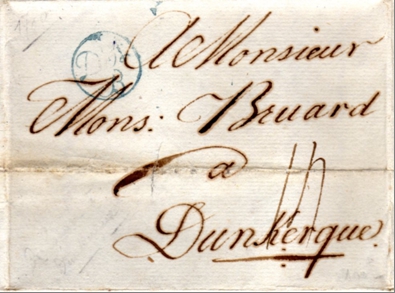 A Monsieur
Mons: Bruard
a
Dunkerque.